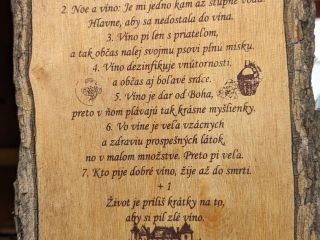 2. Noe a víno: Je mi jedno kam až stúpne voda.
Hlavne, aby sa nedostala do vína.
3. Víno pi len s priateľom,
a tak občas nalej svojmu psovi plnú misku.
4. Víno dezinfikuje vnútornosti,
a občas aj boľavé srdce.
5. Víno je dar od Boha,
preto v ňom plávajú tak krásne myšlienky.
6. Vo víne je veľa vzácnych
a zdraviu prospešných látok,
no v malom množstve. Preto pi veľa.
7. Kto pije dobré víno, žije až do smrti.
+ 1
Život je príliš krátky na to,
aby si pil zlé víno.